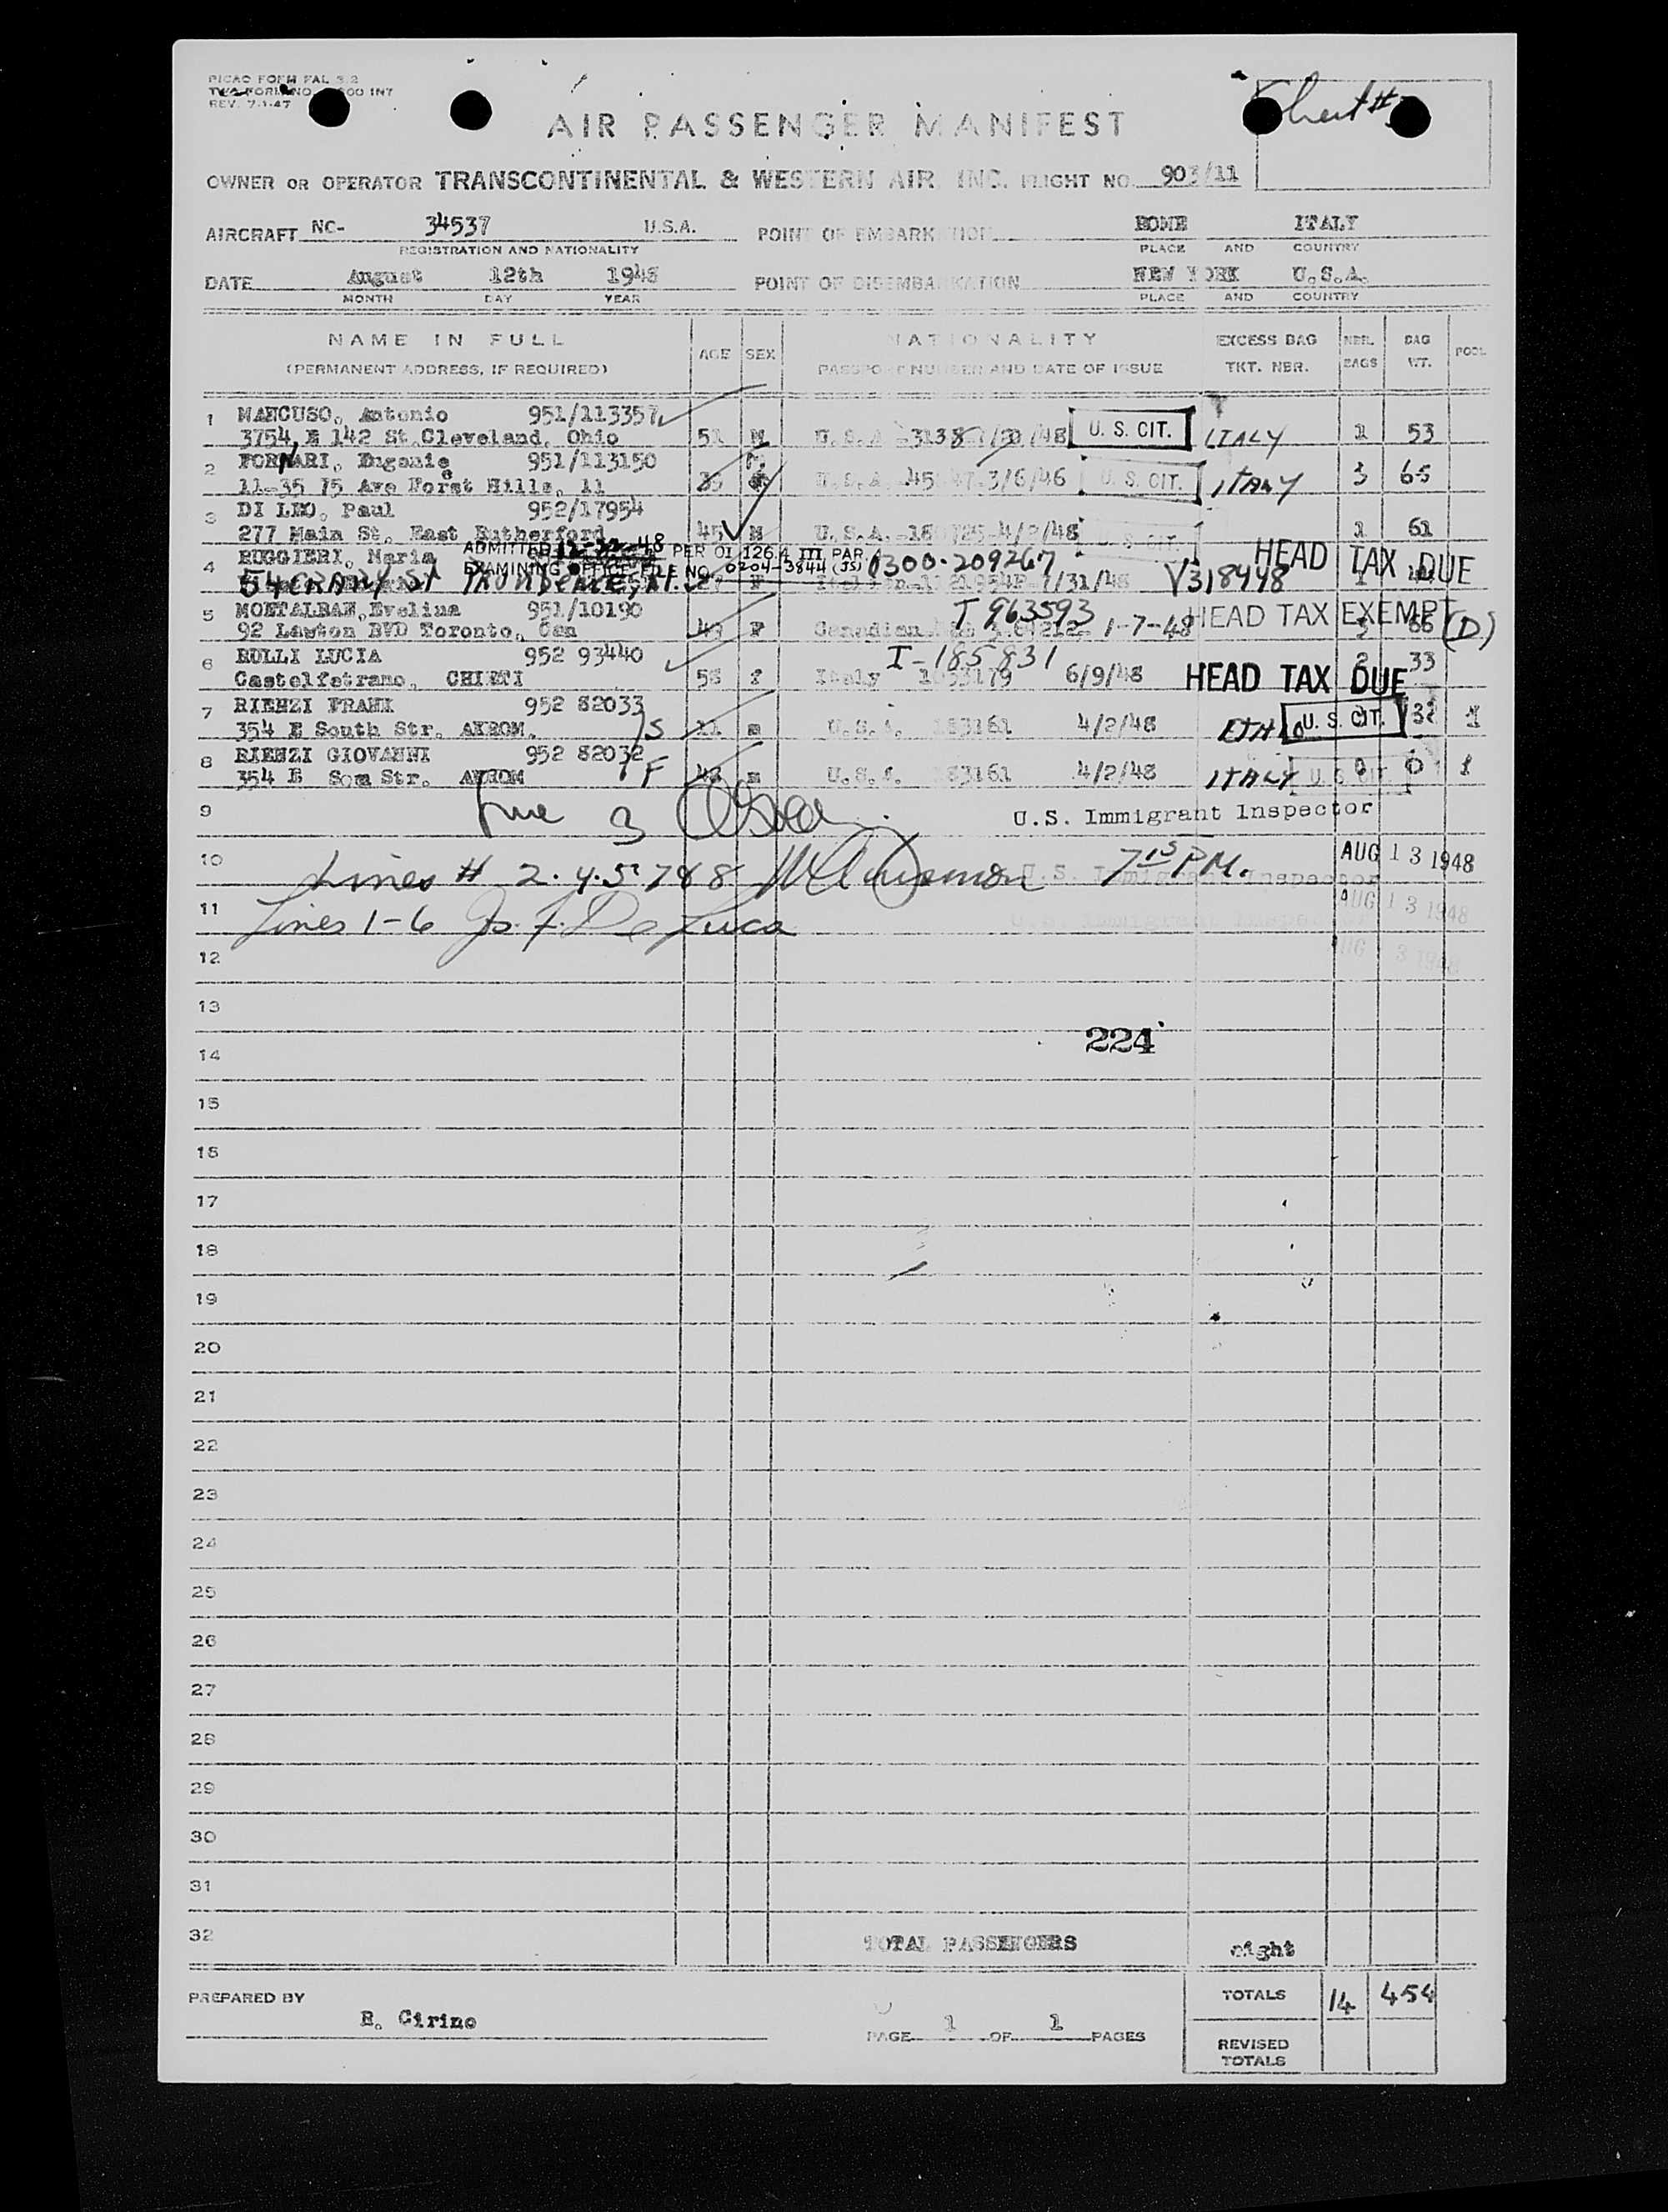 PICAO FORM FAL 3.2
REV. 7-1-47
AIR PASSENGER MANIFEST
OWNER OR OPERATOR TRANSCONTINENTAL & WESTERN AIR, INC. FLIGHT NO. 903/11
AIRCRAFT NC- 34537 U.S.A. POINT OF EMBARKATION ROME ITALY
REGISTRATION AND NATIONALITY PLACE AND COUNTRY
DATE August 12th 1948 POINT OF DISEMBARKATION NEW YORK U.S.A.
MONTH DAY YEAR PLACE AND COUNTRY
NAME IN FULL AGE SEX NATIONALITY EXCESS BAG NBR. BAG POOL
(PERMANENT ADDRESS, IF REQUIRED) PASSPORT NUMBER AND DATE OF ISSUE TKT. NBR. BAGS WT.
1 MANCUSO, Antonio 951/113357
3754, E 142 St. Cleveland, Ohio 51 M U.S.A. U. S. CIT. ITALY 1 53
2 FORNARI, Eugenie 951/113150
11-35 75 Ave Forst Hills, 11 U.S.A. 3/6/46 U. S. CIT. ITALY 3 65
3 DI LEO, Paul 952/17954
277 Main St. East Rutherford 45 M U.S.A. 4/2/48 U. S. CIT. 1 61
4 RUGGIERI, Maria ADMITTED PER OI 126.4 III PAR. HEAD TAX DUE
EXAMINING OFFICE FILE NO. 0204-3844 (JS) 0300-209267
54 CRARY St Providence, R.I. F 7/31/48 V318448
5 MONTALBAN, Evelina 951/10190 T 963593 HEAD TAX EXEMPT (D)
92 Lawton BVD Toronto, Can F Canadian 1-7-48 66
6 RULLI LUCIA 952 93440 I-185831 2 33
Castelfetrano, CHIETI 58 f Italy 6/9/48 HEAD TAX DUE
7 RIENZI FRANK 952 82033
354 E South Str. AKRON. S 11 m U.S.A. 4/2/48 U. S. CIT. 32 1
8 RIENZI GIOVANNI 952 82032
354 E Som Str. AKRON F 48 m U.S.A. 4/2/48 ITALY U. S. CIT. 0 0 1
9 U.S. Immigrant Inspector
10 Lines # 2.4.5.7&8 7 15 PM. U.S. Immigrant Inspector AUG 13 1948
11 Lines 1-6 Js. F. De Luca U.S. Immigrant Inspector AUG 13 1948
12 AUG 13 1948
13
224
14
15
16
17
18
19
20
21
22
23
24
25
26
27
28
29
30
31
32 TOTAL PASSENGERS eight
PREPARED BY TOTALS 14 454
E. Cirino PAGE 1 OF 1 PAGES
REVISED
TOTALS